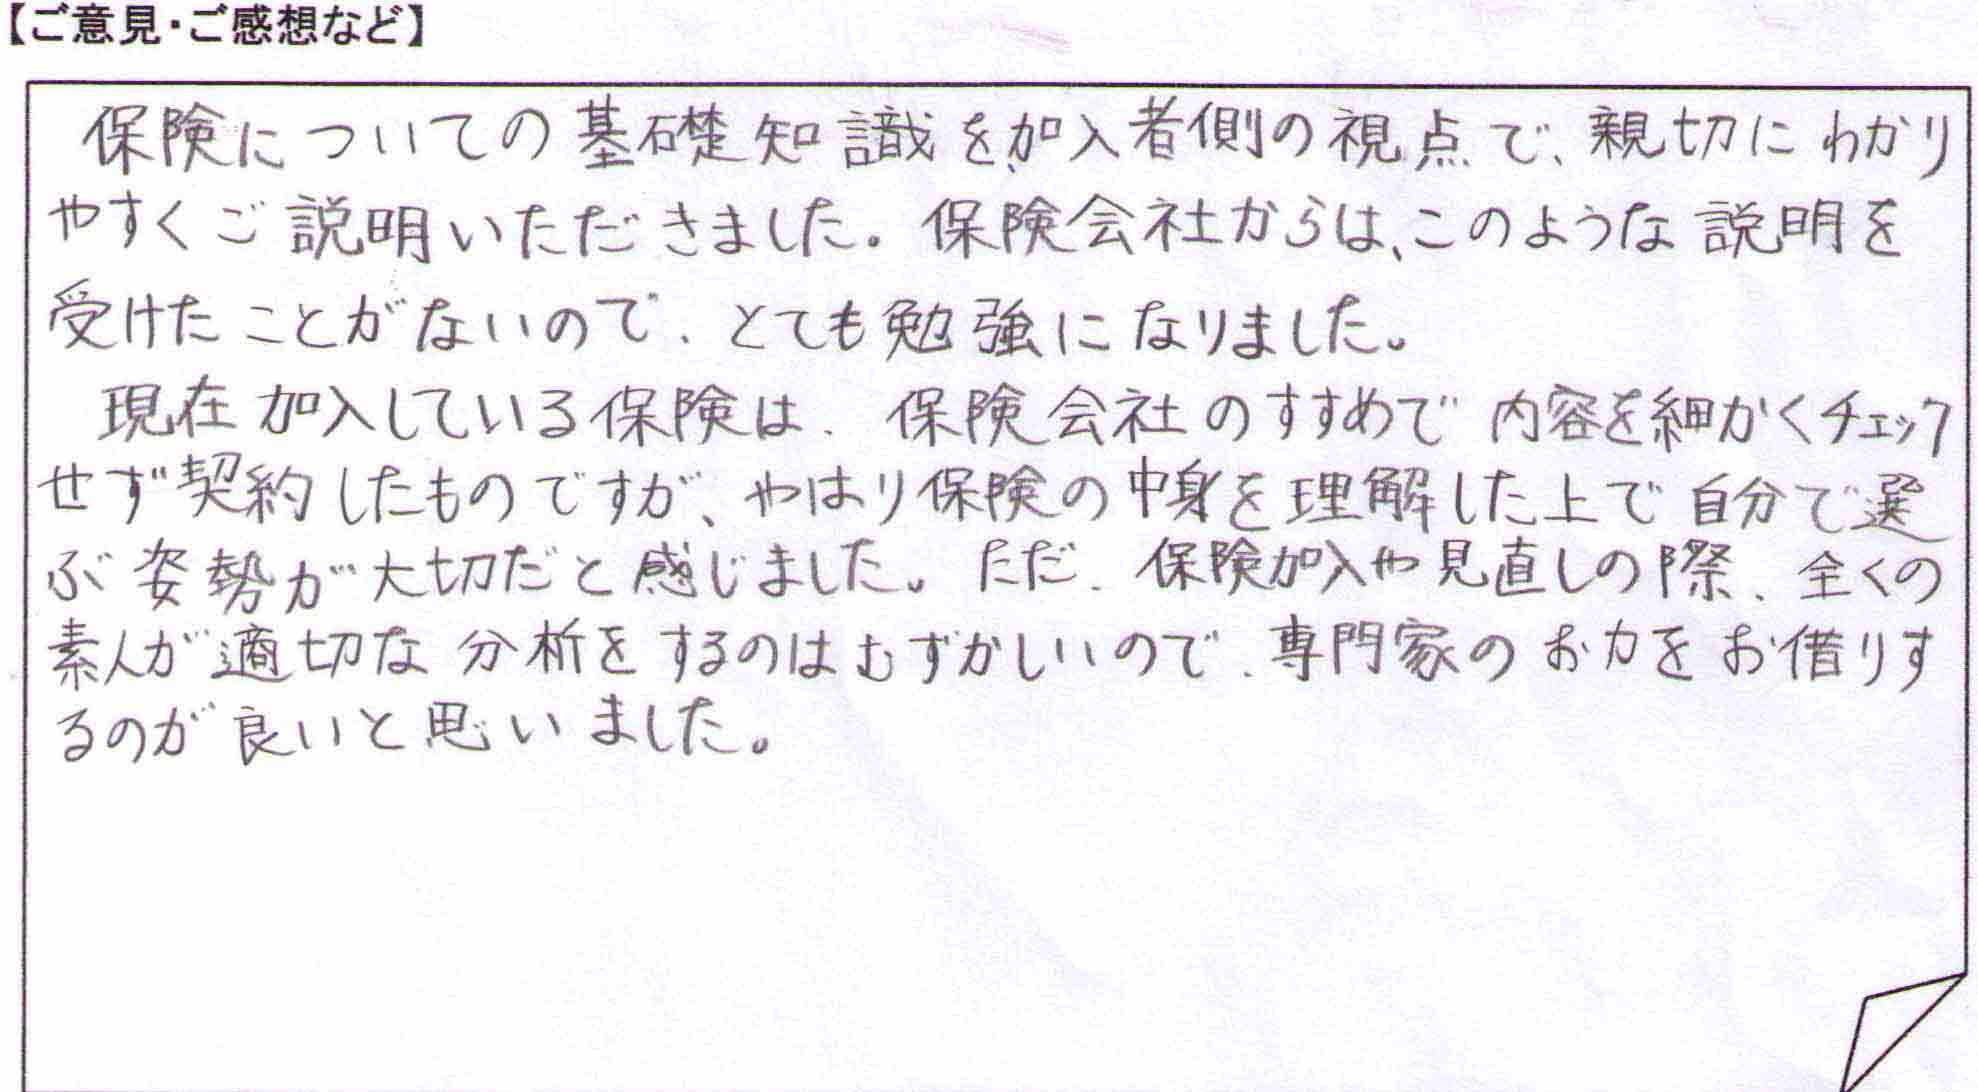 【ご意見・ご感想など】
保険についての基礎知識を、加入者側の視点で、親切にわかり
やすくご説明いただきました。保険会社からは、このような説明を
受けたことがないので、とても勉強になりました。
現在加入している保険は、保険会社のすすめで内容を細かくチェック
せず契約したものですが、やはり保険の中身を理解した上で自分で選
ぶ姿勢が大切だと感じました。ただ、保険加入や見直しの際、全くの
素人が適切な分析をするのはむずかしいので、専門家のお力をお借りす
るのが良いと思いました。